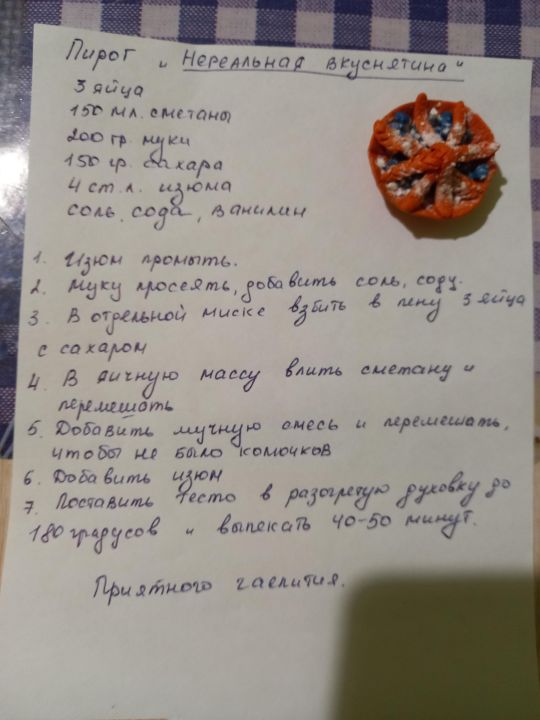 Пирог „Нереальная вкуснятина"
3 яйца
150 мл. сметаны
200 гр. муки
150 гр. сахара
4 ст. л. изюма
соль, сода, ванилин
1. Изюм промыть.
2. Муку просеять, добавить соль, соду.
3. В отдельной миске взбить в пену 3 яйца
с сахаром
4. В яичную массу влить сметану и
перемешать
5. Добавить мучную смесь и перемешать,
чтобы не было комочков
6. Добавить изюм
7. Поставить тесто в разогретую духовку до
180 градусов и выпекать 40-50 минут.
Приятного